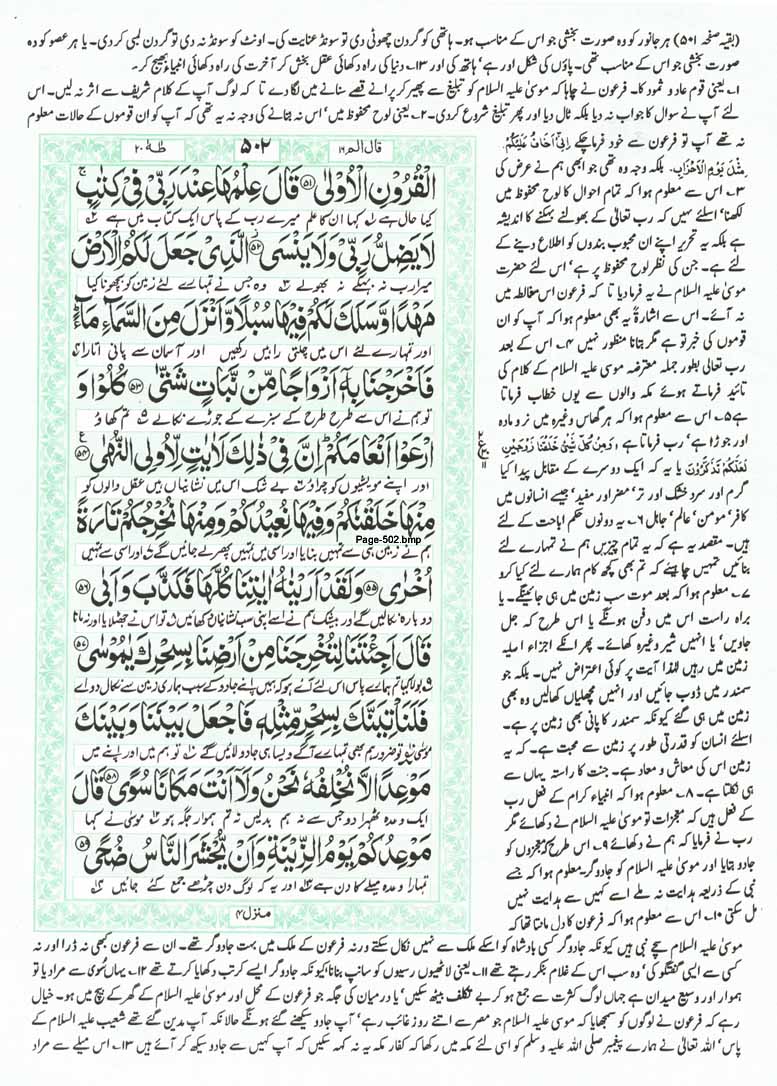 (بقیہ صفحہ ۵۰۱) ہر جانور کو وہ صورت بخشی جو اس کے مناسب ہو۔ ہاتھی کو گردن چھوٹی دی تو سونڈ عنایت کی۔ اونٹ کو سونڈ نہ دی تو گردن لمبی کر دی۔ یا ہر عضو کو وہ
صورت بخشی جو اس کے مناسب تھی۔ پاؤں کی شکل اور ہے‘ ہاتھ کی اور ۱۳۔ دنیا کی راہ دکھائی عقل بخش کر آخرت کی راہ دکھائی انبیاء بھیج کر۔
۱۔ یعنی قوم عاد و ثمود کا۔ فرعون نے چاہا کہ موسیٰ علیہ السلام کو تبلیغ سے پھیر کر پرانے قصے سنانے میں لگا دے تا کہ لوگ آپ کے کلام شریف سے اثر نہ لیں۔ اس
لئے آپ نے سوال کا جواب نہ دیا بلکہ ٹال دیا اور پھر تبلیغ شروع کر دی۔ ۲۔ یعنی لوح محفوظ میں‘ اس نہ بتانے کی وجہ نہ یہ تھی کہ آپ کو ان قوموں کے حالات معلوم
نہ تھے آپ تو فرعون سے خود فرما چکے اِنِّیْ اَخَافُ عَلَیْکُمْ
مِثْلَ یَوْمِ الْاَحْزَابِ۔ بلکہ وجہ وہ تھی جو ابھی ہم نے عرض کی
۳۔ اس سے معلوم ہوا کہ تمام احوال کا لوح محفوظ میں
لکھنا‘ اسلئے نہیں کہ رب تعالیٰ کے بھولنے بہکنے کا اندیشہ
ہے بلکہ یہ تحریر اپنے ان محبوب بندوں کو اطلاع دینے کے
لئے ہے۔ جن کی نظر لوح محفوظ پر ہے‘ اس لئے حضرت
موسیٰ علیہ السلام نے یہ فرما دیا تا کہ فرعون اس مغالطہ میں
نہ آئے۔ اس سے اشارۃً یہ بھی معلوم ہوا کہ آپ کو ان
قوموں کی خبر تو ہے مگر بتانا منظور نہیں ۴۔ اس کے بعد
رب تعالیٰ بطور جملہ معترضہ موسیٰ علیہ السلام کے کلام کی
تائید فرماتے ہوئے مکہ والوں سے یوں خطاب فرماتا
ہے ۵۔ اس سے معلوم ہوا کہ ہر گھاس وغیرہ میں نر و مادہ
اور جوڑا ہے‘ رب فرماتا ہے، وَمِنْ کُلِّ شَیْءٍ خَلَقْنَا زَوْجَیْنِ
لَعَلَّکُمْ تَذَکَّرُوْنَ یا یہ کہ ایک دوسرے کے مقابل پیدا کیا
گرم اور سرد خشک اور تر‘ مضر اور مفید‘ جیسے انسانوں میں
کافر‘ مومن‘ عالم‘ جاہل ۶۔ یہ دونوں حکم اباحت کے لئے
ہیں۔ مقصد یہ ہے کہ یہ تمام چیزیں ہم نے تمہارے لئے
بنائیں تمہیں چاہیئے کہ تم بھی کچھ کام ہمارے لئے کیا کرو
۷۔ معلوم ہوا کہ بعد موت سب زمین میں ہی جائینگے۔ یا
براہ راست اس میں دفن ہونگے یا اس طرح کہ جل
جاویں‘ یا انہیں شیر وغیرہ کھائے۔ پھر انکے اجزاء اصلیہ
زمین میں رہیں لہٰذا آیت پر کوئی اعتراض نہیں۔ بلکہ جو
سمندر میں ڈوب جائیں اور انہیں مچھلیاں کھا لیں وہ بھی
زمین میں ہی گئے کیونکہ سمندر کا پانی بھی زمین پر ہے۔
اسلئے انسان کو قدرتی طور پر زمین سے محبت ہے۔ کہ یہ
زمین اس کی معاش و معاد ہے۔ جنت کا راستہ یہاں سے
ہی نکلتا ہے۔ ۸۔ معلوم ہوا کہ انبیاء کرام کے فعل رب
کے فعل ہیں کہ معجزات تو موسیٰ علیہ السلام نے دکھائے مگر
رب نے فرمایا کہ ہم نے دکھائے ۹۔ اس طرح کہ معجزوں کو
جادو بتایا اور موسیٰ علیہ السلام کو جادوگر۔ معلوم ہوا کہ جسے
نبی کے ذریعہ ہدایت نہ ملے اسے کہیں سے ہدایت نہیں
مل سکتی ۱۰۔ اس سے معلوم ہوا کہ فرعون کا دل مانتا تھا کہ
قال الم ۱۶
۵۰۲
طٰہٰ ۲۰
الْقُرُوْنِ الْاُوْلٰی ﴿۵۱﴾ قَالَ عِلْمُهَا عِنْدَ رَبِّیْ فِیْ كِتٰبٍ ۚ
کیا حال ہے کہا ان کا علم میرے رب کے پاس ایک کتاب میں ہے
لَا یَضِلُّ رَبِّیْ وَلَا یَنْسَی ﴿۵۲﴾ الَّذِیْ جَعَلَ لَكُمُ الْاَرْضَ
میرا رب نہ بہکے نہ بھولے وہ جس نے تمہارے لئے زمین کو بچھونا کیا
مَهْدًا وَّسَلَكَ لَكُمْ فِیْهَا سُبُلًا وَّاَنْزَلَ مِنَ السَّمَآءِ مَآءً ؕ
اور تمہارے لئے اس میں چلتی راہیں رکھیں اور آسمان سے پانی اتارا
فَاَخْرَجْنَا بِهٖۤ اَزْوَاجًا مِّنْ نَّبَاتٍ شَتّٰی ﴿۵۳﴾ كُلُوْا وَ
تو ہم نے اس سے طرح طرح کے سبزے کے جوڑے نکالے تم کھاؤ
ارْعَوْا اَنْعَامَكُمْ ؕ اِنَّ فِیْ ذٰلِكَ لَاٰیٰتٍ لِّاُولِی النُّهٰی ﴿۵۴﴾
اور اپنے مویشیوں کو چراؤ بے شک اس میں نشانیاں ہیں عقل والوں کو
مِنْهَا خَلَقْنٰكُمْ وَفِیْهَا نُعِیْدُكُمْ وَمِنْهَا نُخْرِجُكُمْ تَارَةً
Page-502.bmp
ہم نے زمین ہی سے تمہیں بنایا اور اسی میں تمہیں پھر لے جائیں گے اور اسی سے تمہیں
اُخْرٰی ﴿۵۵﴾ وَلَقَدْ اَرَیْنٰهُ اٰیٰتِنَا كُلَّهَا فَكَذَّبَ وَاَبٰی ﴿۵۶﴾
دوبارہ نکالیں گے اور بیشک ہم نے اسے اپنی سب نشانیاں دکھائیں تو اس نے جھٹلایا اور نہ مانا
قَالَ اَجِئْتَنَا لِتُخْرِجَنَا مِنْ اَرْضِنَا بِسِحْرِكَ یٰمُوْسٰی ﴿۵۷﴾
بولا کیا تم ہمارے پاس اس لئے آئے ہو کہ ہمیں اپنے جادو کے سبب ہماری زمین سے نکال دو اے
فَلَنَاْتِیَنَّكَ بِسِحْرٍ مِّثْلِهٖ فَاجْعَلْ بَیْنَنَا وَبَیْنَكَ
موسیٰ تو ضرور ہم بھی تمہارے آگے ویسا ہی جادو لائیں گے تو ہم میں اور اپنے میں
مَوْعِدًا لَّا نُخْلِفُهٗ نَحْنُ وَلَاۤ اَنْتَ مَكَانًا سُوًی ﴿۵۸﴾ قَالَ
ایک وعدہ ٹھہرا دو جس سے نہ ہم بدلیں نہ تم ہموار جگہ ہو موسیٰ نے کہا
مَوْعِدُكُمْ یَوْمُ الزِّیْنَةِ وَاَنْ یُّحْشَرَ النَّاسُ ضُحًی ﴿۵۹﴾
تمہارا وعدہ میلے کا دن ہے اور یہ کہ لوگ دن چڑھے جمع کئے جائیں
منزل ۴
موسیٰ علیہ السلام سچے نبی ہیں کیونکہ جادوگر کسی بادشاہ کو اسکے ملک سے نہیں نکال سکتے ورنہ فرعون کے ملک میں بہت جادوگر تھے۔ ان سے فرعون کبھی نہ ڈرا اور نہ
کسی سے ایسی گفتگو کی‘ وہ سب اس کے غلام بنکر رہتے تھے ۱۱۔ یعنی لاٹھیوں رسیوں کو سانپ بنانا‘ کیونکہ جادوگر ایسے کرتب دکھایا کرتے تھے ۱۲۔ یہاں سُوًی سے مراد یا تو
ہموار اور وسیع میدان ہے جہاں لوگ کثرت سے جمع ہو کر بے تکلف بیٹھ سکیں‘ یا درمیان کی جگہ جو فرعون کے محل اور موسیٰ علیہ السلام کے گھر کے بیچ میں ہو۔ خیال
رہے کہ فرعون نے لوگوں کو سمجھایا کہ موسیٰ علیہ السلام جو مصر سے اتنے روز غائب رہے‘ آپ جادو سیکھنے گئے ہونگے حالانکہ آپ مدین گئے تھے شعیب علیہ السلام کے
پاس‘ اللہ تعالیٰ نے ہمارے پیغمبر صلی اللہ علیہ وسلم کو اسی لئے مکہ میں رکھا کہ کفار مکہ یہ نہ کہہ سکیں کہ آپ کہیں سے جادو سیکھ کر آئے ہیں ۱۳۔ اس میلے سے مراد